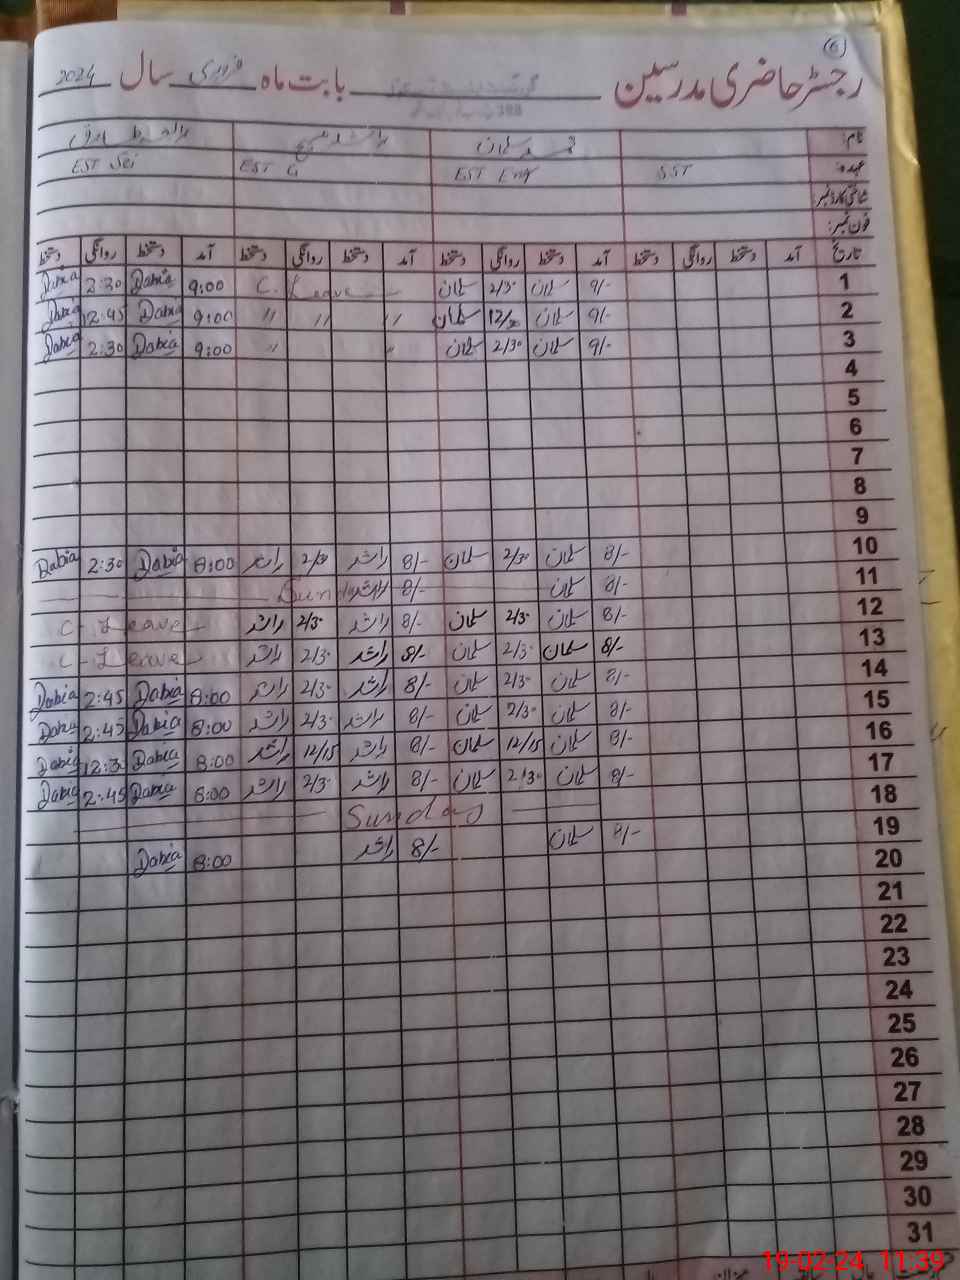 6
رجسٹر حاضری مدرسین بابت ماہ فروری سال 2024
نام:
عہدہ: SST EST Eng EST G EST Sci
شناختی کارڈ نمبر:
فون نمبر:
تاریخ آمد دستخط روانگی دستخط آمد دستخط روانگی دستخط آمد دستخط روانگی دستخط آمد دستخط روانگی دستخط
1 9/- سلمان 2/30 سلمان C. Leave 9:00 Rabia 2:30 Rabia
2 9/- سلمان 12/30 سلمان " " " 9:00 Rabia 12:45 Rabia
3 9/- سلمان 2/30 سلمان " " 9:00 Rabia 2:30 Rabia
4
5
6
7
8
9
10 8/- سلمان 2/30 سلمان 8/- راشد 2/30 راشد 8:00 Rabia 2:30 Rabia
11 8/- سلمان 8/- راشد Sunday
12 8/- سلمان 2/30 سلمان 8/- راشد 2/30 راشد C- Leave
13 8/- سلمان 2/30 سلمان 8/- راشد 2/30 راشد C- Leave
14 8/- سلمان 2/30 سلمان 8/- راشد 2/30 راشد 8:00 Rabia 2:45 Rabia
15 8/- سلمان 2/30 سلمان 8/- راشد 2/30 راشد 8:00 Rabia 2:45 Rabia
16 8/- سلمان 12/15 سلمان 8/- راشد 12/15 راشد 8:00 Rabia 12:30 Rabia
17 8/- سلمان 2/30 سلمان 8/- راشد 2/30 راشد 8:00 Rabia 2:45 Rabia
18 Sunday
19 8/- سلمان 8/- راشد 8:00 Rabia
20
21
22
23
24
25
26
27
28
29
30
31
19-02-24 11:39